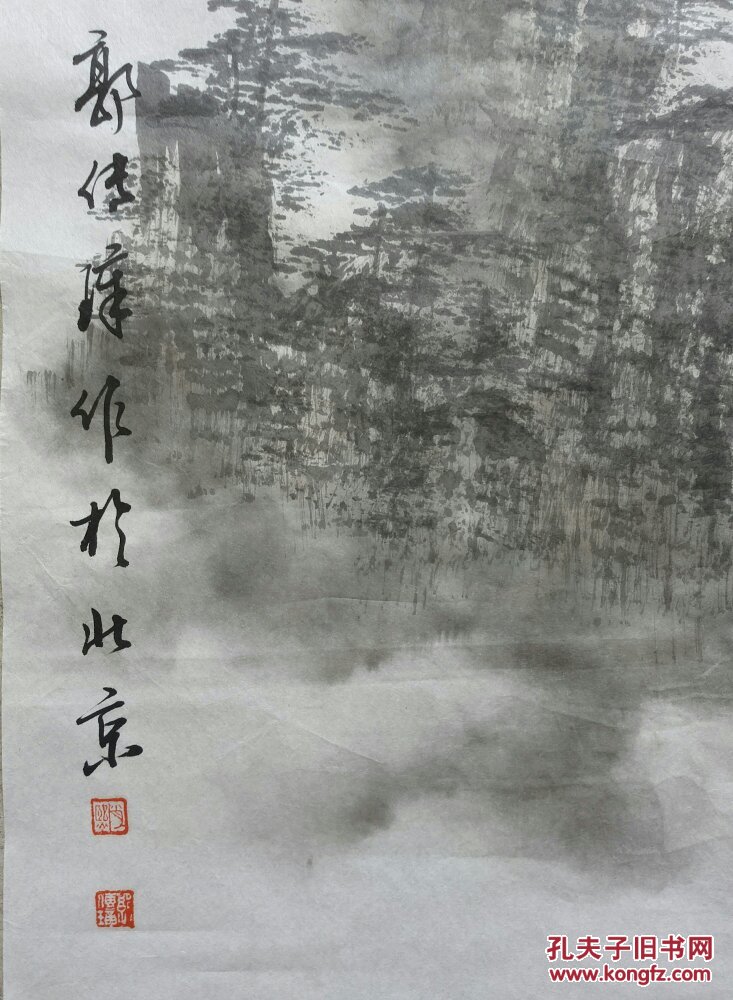 郭传璋作於北京
郭传璋
孔夫子旧书网
www.kongfz.com